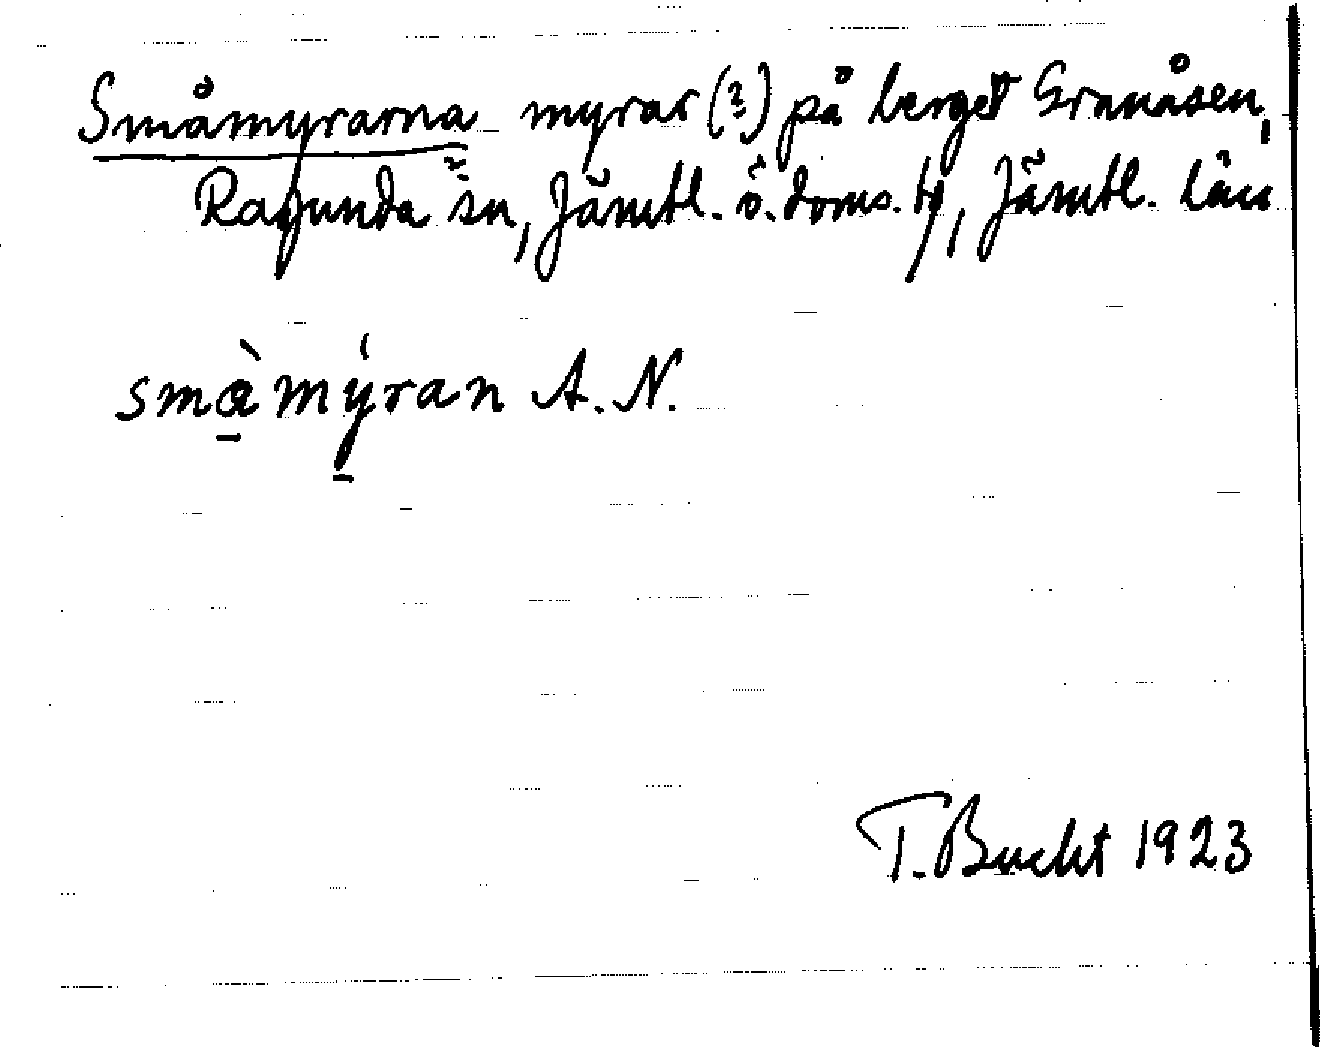 Småmyrarna myrar (?) på berget Granåsen,
Ragunda sn, Jämtl. ö. doms. ty, Jämtl. län
smà̱mý̱ran A. N.
T. Bucht 1923